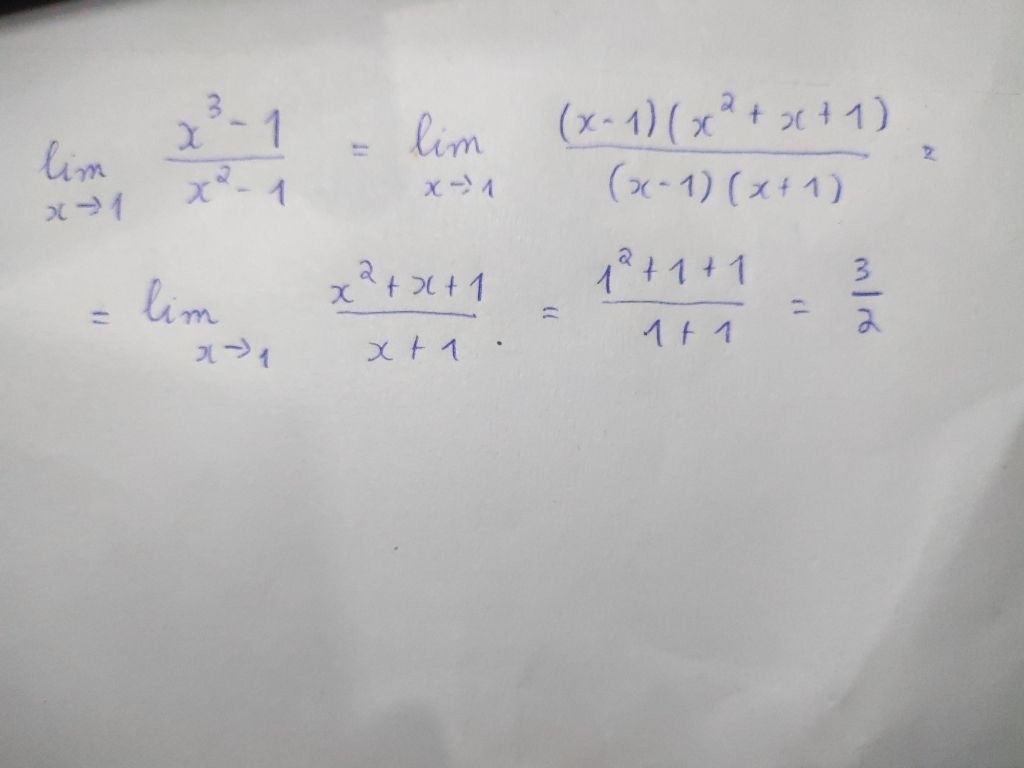 lim x→1 (x³ - 1)/(x² - 1) = lim x→1 ((x-1)(x² + x + 1))/((x-1)(x+1)) =
= lim x→1 (x² + x + 1)/(x + 1) = (1² + 1 + 1)/(1 + 1) = 3/2